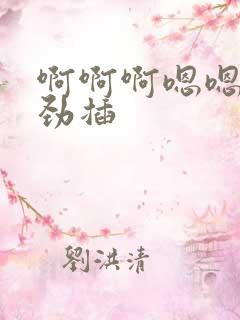 啊啊啊嗯嗯
劲插
劉洪清